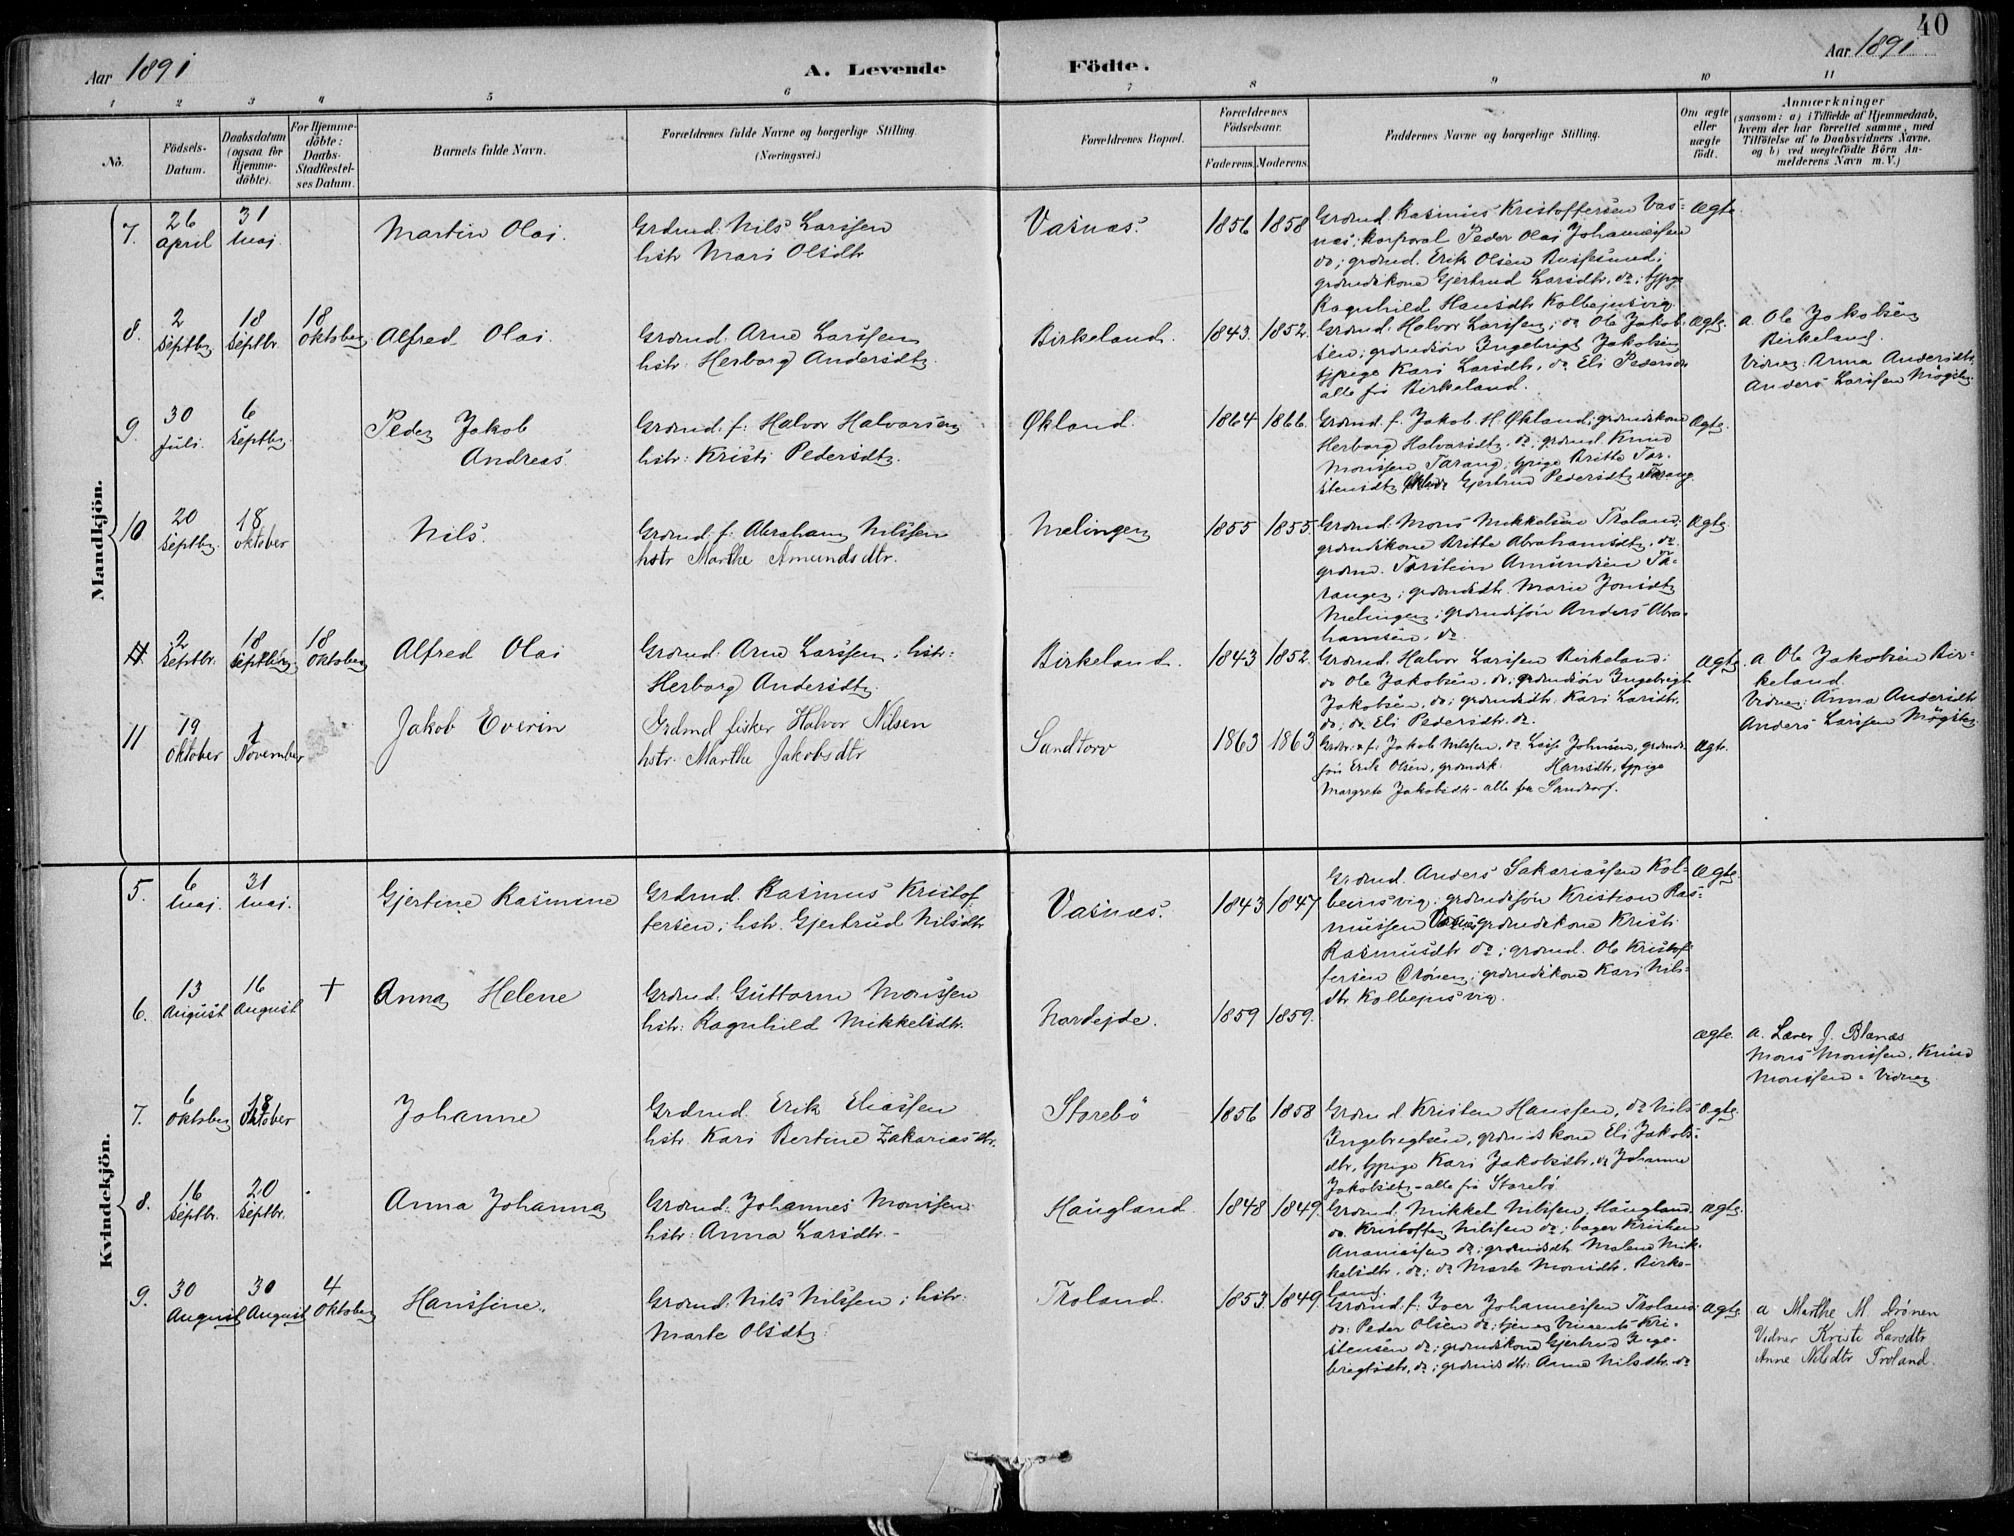 40
Aar 1891
A. Levende Födte.
Aar 1891
1 2 3 4 5 6 7 8 9 10 11
No.
Födsels-
Datum.
Daabsdatum
(ogsaa for
Hjemme-
döbte).
For Hjemme-
döbte:
Daabs-
Stadfestel-
ses Datum.
Barnets fulde Navn.
Forældrenes fulde Navne og borgerlige Stilling.
(Næringsvei.)
Forældrenes Bopæl.
Forældrenes
Födselsaar.
Faderens. Moderens.
Faddernes Navne og borgerlige Stilling.
Om ægte
eller
uægte
födt.
Anmærkninger
(saasom: a) i Tilfælde af Hjemmedaab,
hvem der har forrettet samme, med
Tilföielse af to Daabsvidners Navne,
og b) ved uægtefödte Börn An-
melderens Navn m. V.)
Mandkjön.
7.
26
april
31
mai
Martin Olai.
Grdmd. Nils Larssen
hstr Mari Olsdtr
Vasnæs.
1856 1858
Grdmd. Rasmus Kristoffersen Vas-
næs; korporal Peder Olai Johannessen
do; grdmd. Erik Olsen
grdmdskone Gjertrud Larsdtr. do; tjpige
Ragnhild Hansdtr Kolbejnsvig.
Ægte.
8.
2
Septbr
18
Septbr.
18
oktober
Alfred Olai.
Grdmd. Arne Larssen
hstr: Herborg Andersdtr.
Birkeland.
1843. 1852.
Grdmd. Halvor Larssen; do Ole Jakob-
sen; grdmdsön Ingebrigt Jakobsen
tjpige Kari Larsdtr, do Eli Pedersdtr
alle fra Birkeland.
Ægte
a. Ole Jakobsen
Birkeland.
Vidner: Anna Andersdtr.
Anders Larssen Mögster
9.
30
Juli.
6
Septbr
Peder Jakob
Andreas
Grdmd. f. Halvor Halvorsen
hstr: Kristi Pedersdtr.
Økland.
1864 1866.
Grdmd. f. Jakob H. Økland; grdmdskone
Herborg Halvorsdtr, do; grdmd. Knud
Monssen Tarang; tjpige Britte Tor-
stensdtr Gjertrud Pedersdtr Tarang.
Ægte.
10
20
Septbr.
18
oktober
Nils.
Grdmd. f. Abraham Nilssen
hstr Marthe Amundsdtr.
Melingen
1855 1855.
Grdmd. Mons Mikkelsen Troland;
grdmdskone Britte Abrahamsdtr, do
grdmd. Torstein Amundsen Ta-
rangen; grdmdsdtr. Marie Jonsdtr
Melingen; grdmdsön Anders Abra-
hamsen, do
Ægte
11.
2
Septbr.
18
Septbr
18
oktober
Alfred Olai
Grdmd. Arne Larssen; hstr:
Herborg Andersdtr.
Birkeland.
1843 1852.
Grdmd. Halvor Larssen Birkeland;
do Ole Jakobsen, do; grdmdsön Ingebrigt
Jakobsen, do; grdmdsdtr. Kari Larsdtr.
do; do Eli Pedersdtr. do.
Ægte
a Ole Jakobsen Bir-
keland.
Vidner: Anna Andersdtr.
Anders Larssen Mögster
11
19
oktober
1
November
Jakob Everin
Grdmd fisker Halvor Nilsen
hstr. Marthe Jakobsdtr
Sandtorv
1863 1863
Jakob Nilssen, do Johnsen, grdmds-
sön Erik Olsen, grdmdsk. Hansdtr, tjpige
Margrete Jakobsdtr - alle fra Sandtorf.
Ægte.
Kvindekjön.
5.
6
mai.
31
mai.
Gjertine Rasmine
Grdmd. Rasmus Kristof-
fersen; hstr. Gjertrud Nilsdtr
Vasnæs.
1843 1847
Grdmd. Anders Sakariassen Kol-
beinsvig; grdmdsön Kristian Ras-
mussen grdmdskone Kristi
Rasmusdtr do; grdmd. Ole Kristof-
fersen Drönen; grdmdskone Kari Nils-
dtr Kolbejnsvig.
Ægte.
6.
13
August
16
August
+
Anna Helene
Grdmd. Guttorm Monssen
hstr: Ragnhild Mikkelsdtr.
Nordejde.
1859 1859.
Ægte.
a. Lærer J. Blænæs
Mons Monssen, Knud
Monssen - Vidner
7.
6
oktober
18
Oktober
Johanne
Grdmd. Erik Eliassen
hstr. Kari Bertine Zakariasdtr.
Storebö
1856 1858
Grdmd. Kristen Hanssen, do Nils
Ingebrigtsen, grdmdskone Eli Jakobs-
dtr, tjpige Kari Jakobsdtr, do Johanne
Jakobsdtr - alle fra Storebö
Ægte.
8.
16
Septbr.
20
Septbr.
Anna Johanna
Grdmd. Johannes Monssen
hstr: Anna Larsdtr.
Haugland.
1848 1849.
Grdmd. Mikkel Nilssen, Haugland.
do. Kristoffer Nilssen do; bager Kristian
Ananiassen do; grdmdsdtr Malene Mik-
kelsdtr, do; do Marte Monsdtr, Birke-
land;
Ægte.
9.
30
August
30
August
4
Oktober
Hanssine.
Grdmd. Nils Nilssen; hstr.
Marte Olsdtr.
Troland.
1853. 1849.
Grdmd. f. Iver Johannessen Troland
do: Peder Olsen do; tjener Vincents Kri-
stensen do; grdmdskone Gjertrud Inge-
brigtsdtr, do; grdmdsdtr: Anne Nilsdtr. do
Ægte.
a Marthe M. Drönen
Vidner Kristi Larsdtr
Anne Nilsdtr Troland.